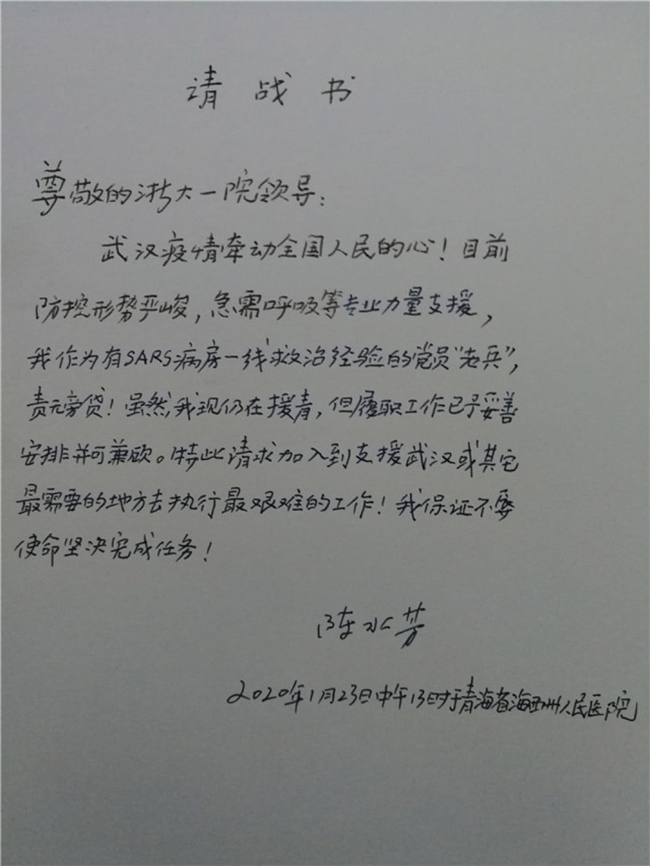 请战书
尊敬的浙大一院领导：
武汉疫情牵动全国人民的心！目前
防控形势严峻，急需呼吸等专业力量支援，
我作为有SARS病房一线救治经验的党员“老兵”，
责无旁贷！虽然，我现仍在援青，但履职工作已予妥善
安排并可兼顾。特此请求加入到支援武汉或其它
最需要的地方去执行最艰难的工作！我保证不辱
使命坚决完成任务！
陈水芳
2020年1月23日中午13时于青海省海西州人民医院